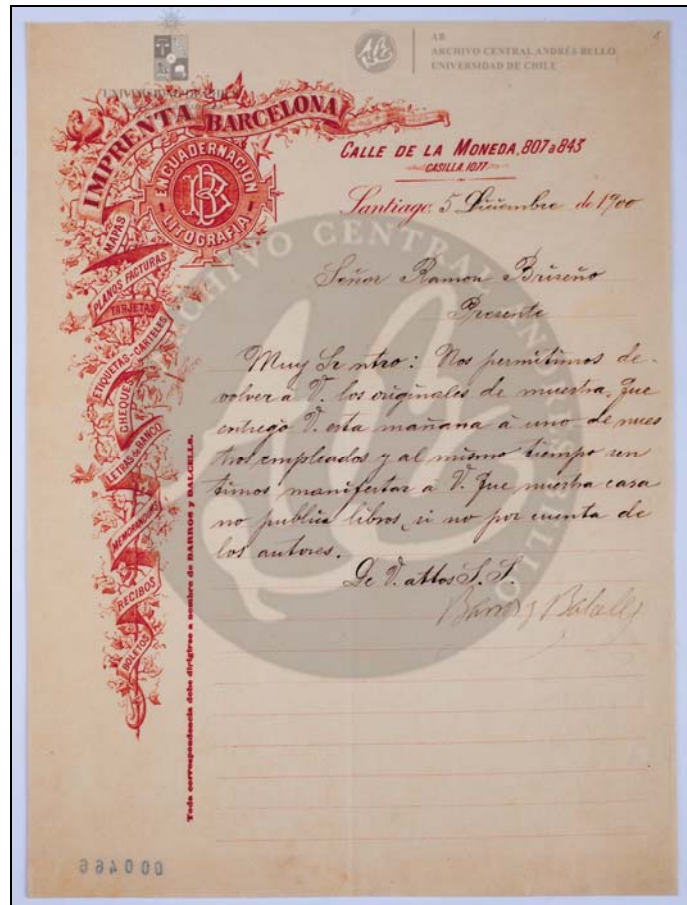 UNIVERSIDAD DE CHILE
AB
ARCHIVO CENTRAL ANDRÉS BELLO
UNIVERSIDAD DE CHILE
IMPRENTA BARCELONA
ENCUADERNACION
LITOGRAFIA
CALLE DE LA MONEDA, 807 a 843
CASILLA, 1077
Santiago, 5 Diciembre de 1900
MAPAS
PLANOS FACTURAS
TARJETAS
ETIQUETAS-CARTELES
CHEQUES
LETRAS de BANCO
MEMORANDUMS
RECIBOS
BOLETOS
Toda correspondencia debe dirigirse a nombre de BARROS y BALCELLS.
Señor Ramon Briseño
Presente
Muy Sr ntro: Nos permitimos de-
volver a V. los originales de muestra, que
entregó V. esta mañana á uno de nues
tros empleados y al mismo tiempo sen
timos manifestar á V. que nuestra casa
no publica libros, si no por cuenta de
los autores.
De V. attos S. S.
Barros y Balcells
000466
ARCHIVO CENTRAL ANDRÉS BELLO